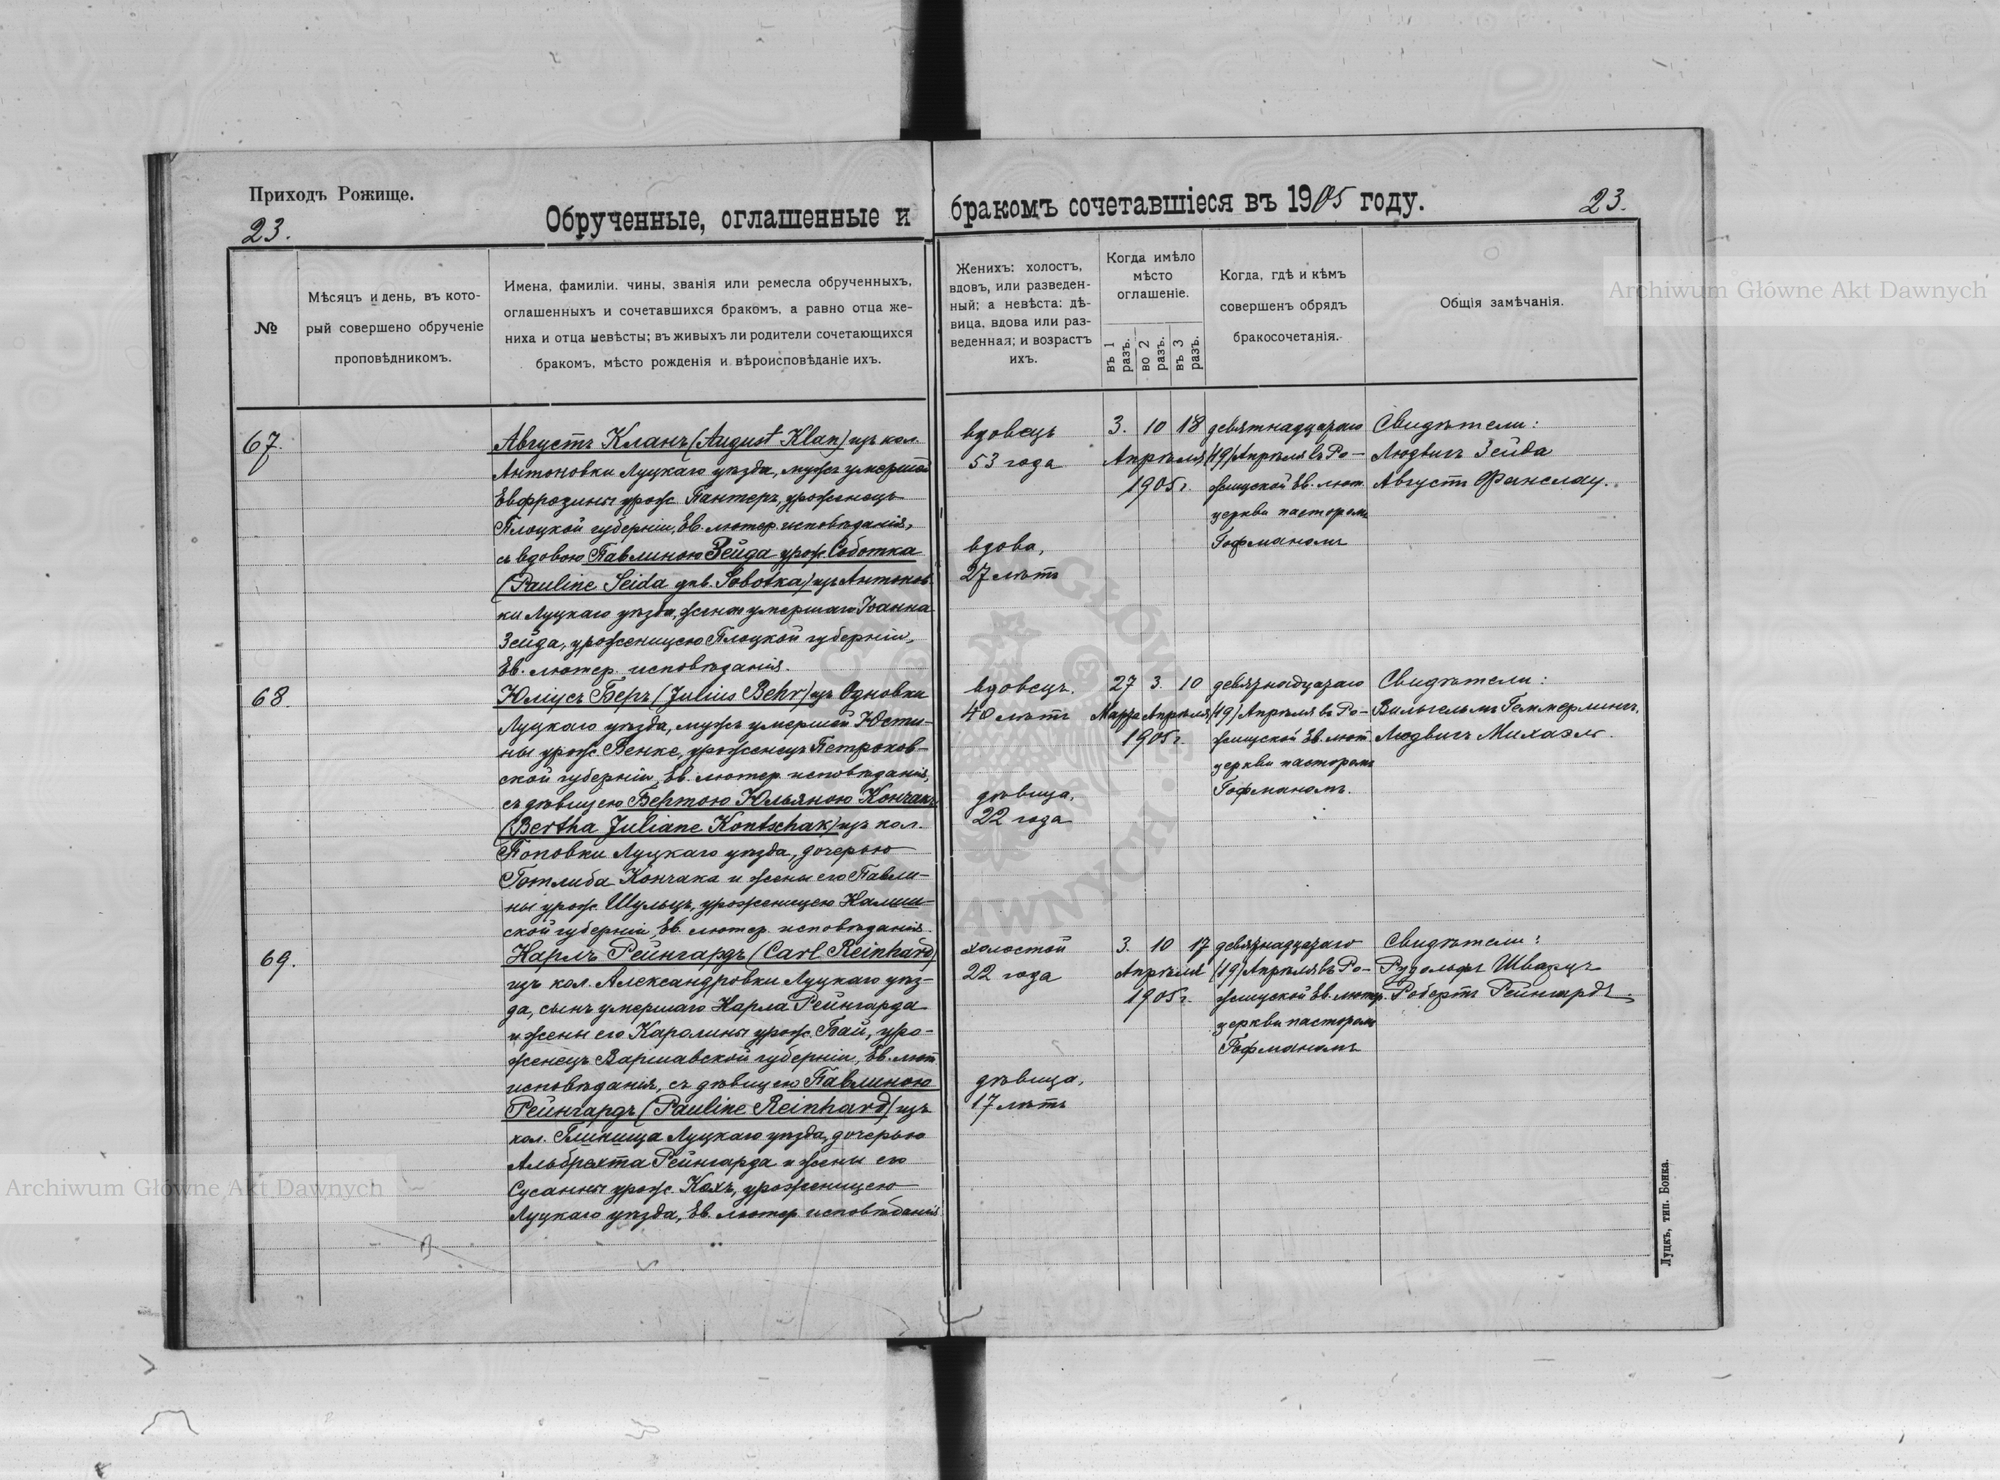 Приходъ Рожище.
23.
Обрученные, оглашенные и бракомъ сочетавшіеся въ 1905 году.
23.
№
Мѣсяцъ и день, въ кото-
рый совершено обрученіе
проповѣдникомъ.
Имена, фамиліи. чины, званія или ремесла обрученныхъ,
оглашенныхъ и сочетавшихся бракомъ, а равно отца же-
ниха и отца невѣсты; въ живыхъ ли родители сочетающихся
бракомъ, мѣсто рожденія и вѣроисповѣданіе ихъ.
Женихъ: холостъ,
вдовъ, или разведен-
ный; а невѣста: дѣ-
вица, вдова или раз-
веденная; и возрастъ
ихъ.
Когда имѣло
мѣсто
оглашеніе.
въ 1 разъ.
во 2 разъ.
въ 3 разъ.
Когда, гдѣ и кѣмъ
совершенъ обрядъ
бракосочетанія.
Общія замѣчанія.
67.
Августъ Кланъ (August Klan) изъ кол.
Антоновки Луцкаго уѣзда, мужъ умершей
Евфрозины урож. Пантеръ, уроженецъ
Плоцкой губерніи, Ев. лютер. исповѣданія,
съ вдовою Павлиною Зейда урож. Соботка
(Pauline Seida geb. Sobotka) изъ Антонов-
ки Луцкаго уѣзда, женою умершаго Іоанна
Зейда, уроженицею Плоцкой губерніи,
Ев. лютер. исповѣданія.
вдовецъ
53 года
вдова,
27 лѣтъ
3. 10 18
Апрѣля
1905 г.
девятнадцатаго
(19) Апрѣля въ Ро-
жищской Ев. лют.
церкви пасторомъ
Гофманомъ
Свидѣтели:
Людвигъ Зейда
Августъ Фанслау.
68.
Юліусъ Беръ (Julius Behr) изъ Одновки
Луцкаго уѣзда, мужъ умершей Юсти-
ны урож. Венке, уроженецъ Петроков-
ской губерніи, Ев. лютер. исповѣданія,
съ дѣвицею Бертою Юльяною Кончакъ
(Bertha Juliane Kontschak) изъ кол.
Поповки Луцкаго уѣзда, дочерью
Готлиба Кончака и жены его Павли-
ны урож. Шульцъ, уроженицею Калиш-
ской губерніи, Ев. лютер. исповѣданія.
вдовецъ.
40 лѣтъ
дѣвица,
22 года
27 3. 10
Марта Апрѣля
1905 г.
девятнадцатаго
(19) Апрѣля въ Ро-
жищской Ев. лют.
церкви пасторомъ
Гофманомъ.
Свидѣтели:
Вильгельмъ Геммерлингъ,
Людвигъ Михаэль.
69.
Карлъ Рейнгардъ (Carl Reinhard)
изъ кол. Александровки Луцкаго уѣз-
да, сынъ умершаго Карла Рейнгарда
и жены его Каролины урож. Бай, уро-
женецъ Варшавской губерніи, Ев. лют.
исповѣданія, съ дѣвицею Павлиною
Рейнгардъ (Pauline Reinhard) изъ
кол. Глинища Луцкаго уѣзда, дочерью
Альбрехта Рейнгарда и жены его
Сусанны урож. Кохъ, уроженицею
Луцкаго уѣзда, Ев. лютер. исповѣданія
холостой
22 года
дѣвица,
17 лѣтъ
3. 10 17
Апрѣля
1905 г.
девятнадцатаго
(19) Апрѣля въ Ро-
жищской Ев. лютер.
церкви пасторомъ
Гофманомъ
Свидѣтели:
Рудольфъ Шварцъ
Робертъ Рейнгардъ.
Луцкъ, тип. Бонка.
Archiwum Główne Akt Dawnych
Archiwum Główne Akt Dawnych